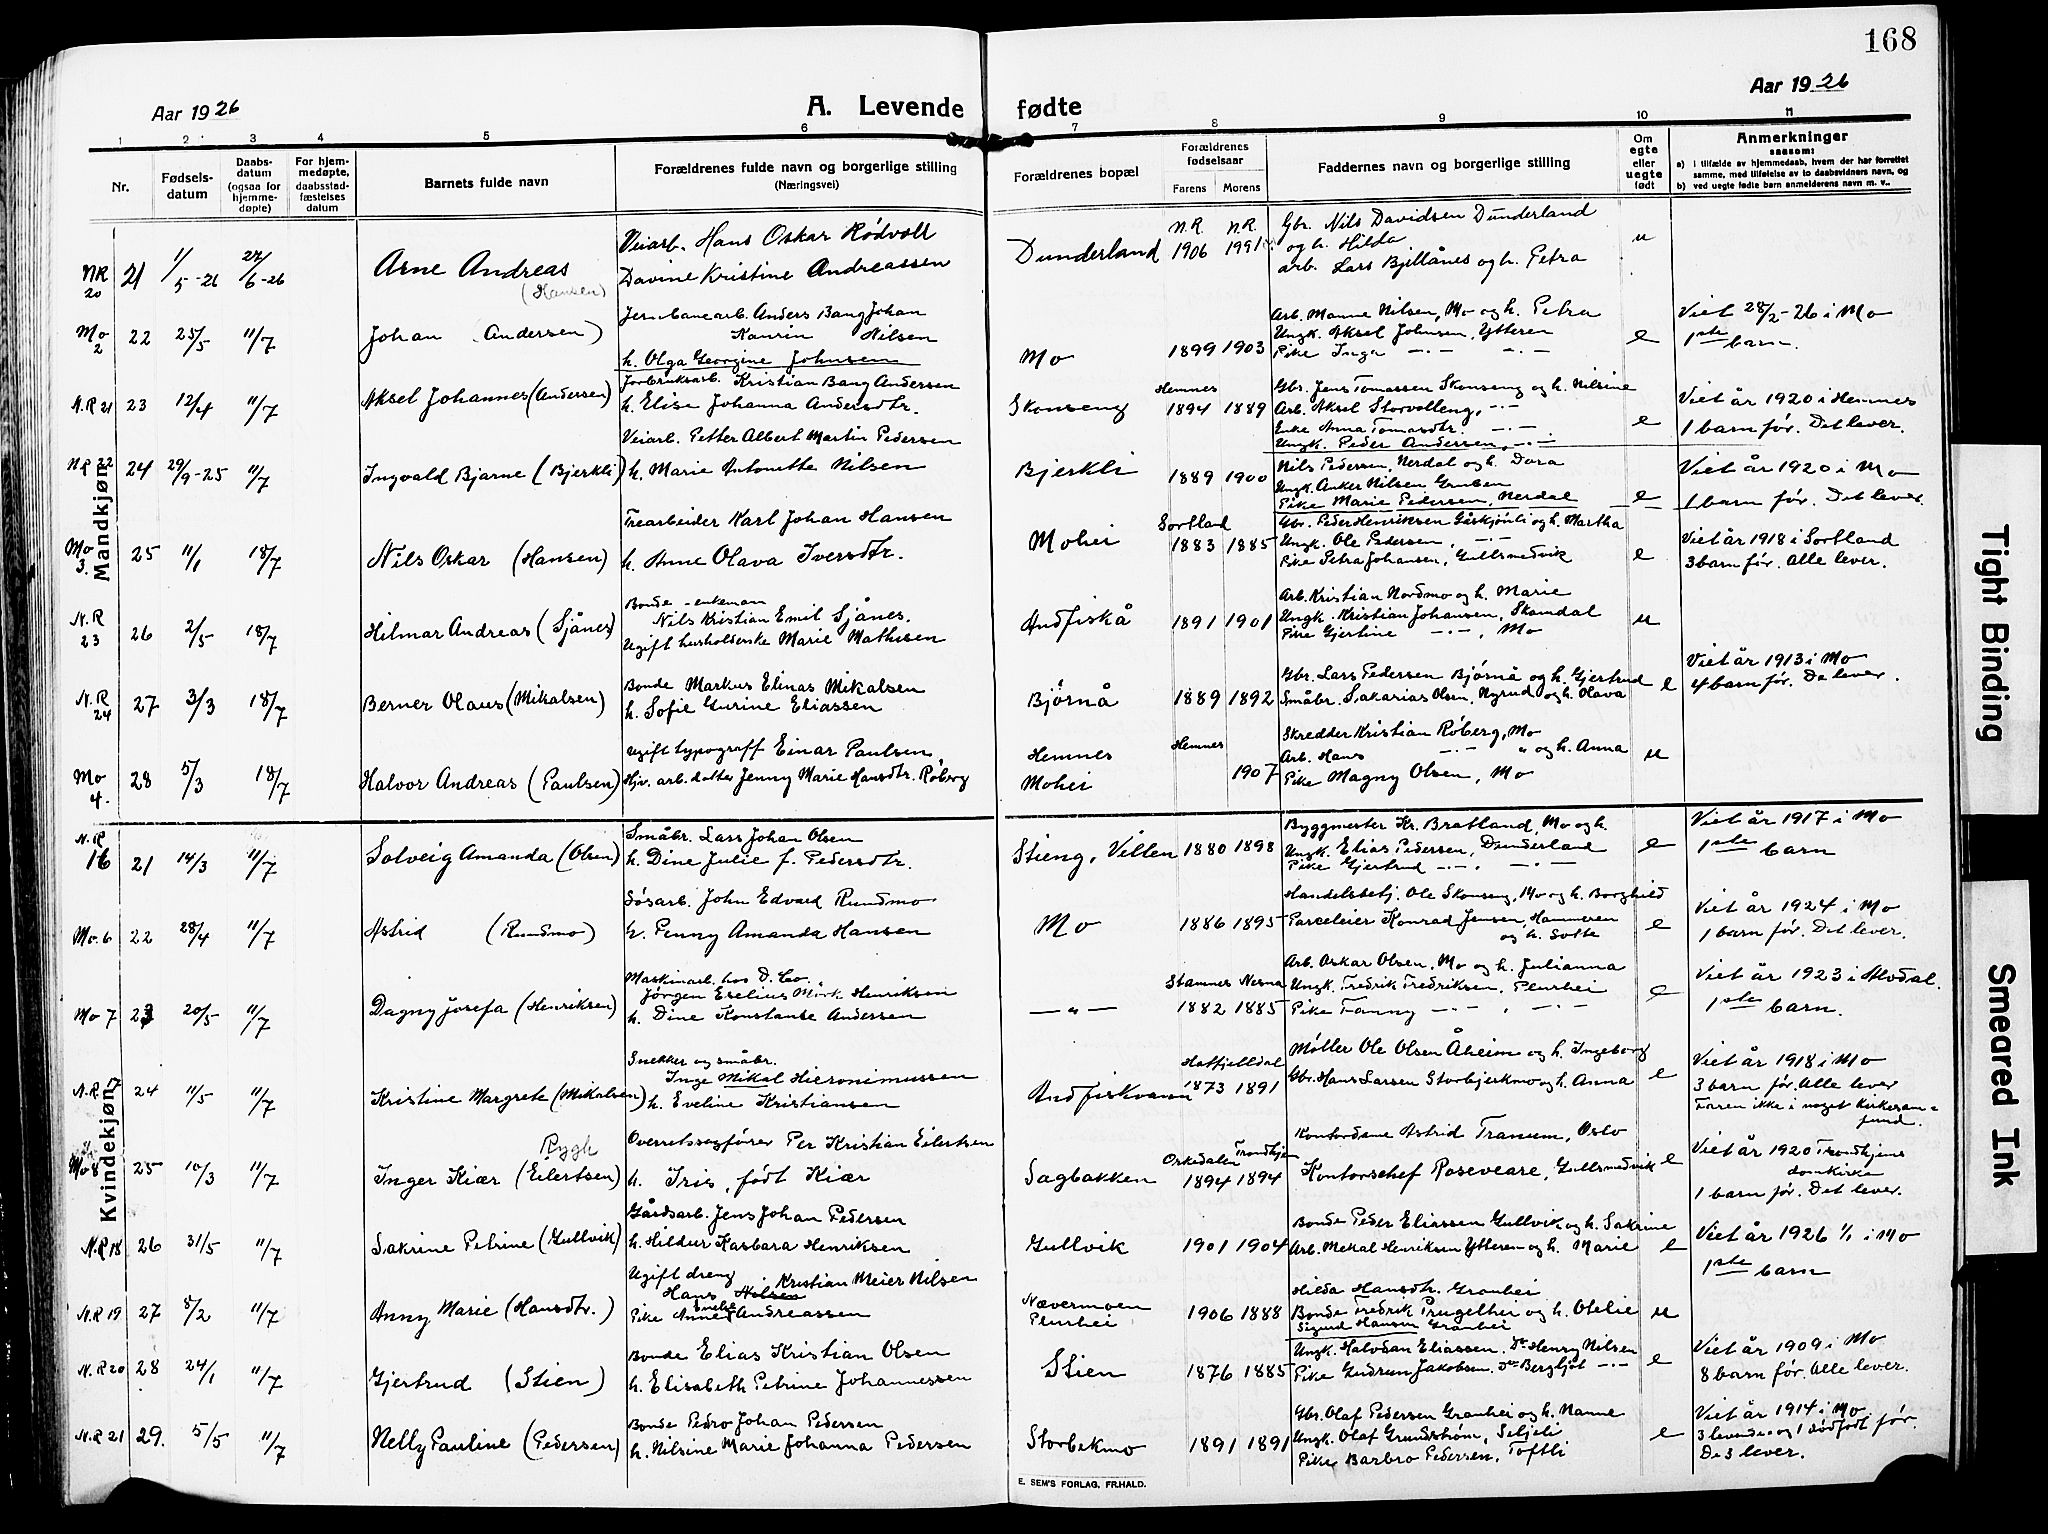 168
Aar 1926
A. Levende fødte
Aar 1926
1 2 3 4 5 6 7 8 9 10 11
Nr.
Fødsels-
datum
Daabs-
datum
(ogsaa for
hjemme-
døpte)
For hjem-
medøpte,
daabsstad-
fæstelses
datum
Barnets fulde navn
Forældrenes fulde navn og borgerlige stilling
(Næringsvei)
Forældrenes bopæl
Forældrenes
fødselsaar
Farens Morens
Faddernes navn og borgerlige stilling
Om
egte
eller
uegte
født
Anmerkninger
saasom:
a) i tilfælde av hjemmedaab, hvem der har forrettet
samme, med tilføielse av to daabsvidners navn, og
b) ved uegte fødte barn anmelderens navn m. v..
Mandkjøn
N.R 20 21 1/5-26 27/6-26 Arne Andreas
(Hansen)
Veiarb. Hans Oskar Rödvoll
Davine Kristine Andreassen
Dunderland
N.R. N.R.
1906
Gbr. Nils Davidsen Dunderland
og h. Hilda
arb. Lars Bjellånes og h. Petra
u
Mo 2 22 25/5 11/7 Johan (Andersen)
Jernbanearb. Anders Bang Johan
Kaurin Nilsen
h. Olga Georgine Johnsen
Mo 1899 1903
Arb. Manne Nilsen, Mo og h. Petra
Ungk. Aksel Johnsen, Ytteren
Pike Inga -"- -"-
e
Viet 28/2-26 i Mo
1ste barn.
N.R 21 23 12/4 11/7 Aksel Johannes (Andersen)
Jordbruksarb. Kristian Bang Andersen
h. Elise Johanna Andersdtr.
Skonseng
Hemnes
1894 1889
Gbr. Jens Tomassen Skonseng og h. Nilsine
Arb. Aksel Storvolleng, -"-
Enke Anna Tomasdtr. -"-
Ungk. Peder Andersen, -"-
e
Viet år 1920 i Hemnes
1 barn før. Det lever.
N.R 22 24 29/9-25 11/7 Ingvald Bjarne (Bjerkli)
Veiarb. Petter Albert Martin Pedersen
h. Marie Antonette Nilsen
Bjerkli 1889 1900
Nils Pedersen, Nerdal og h. Dora
Ungk. Anker Nilsen Gruben
Pike Marie Pedersen, Nerdal
e
Viet år 1920 i Mo
1 barn før. Det lever.
Mo 3. 25 11/1 18/7 Nils Oskar (Hansen)
Trearbeider Karl Johan Hansen
h. Anne Olava Iversdtr.
Mohei
Sortland
1883 1885
Gbr. Peder Henriksen Gåskjønli og h. Martha
Ungk. Ole Pedersen, -"-
Pike Petra Johansen, Gullsmedvik
e
Viet år 1918 i Sortland
3 barn før. Alle lever.
N.R 23 26 2/5 18/7 Hilmar Andreas (Sjånes)
Bonde - enkeman
Nils Kristian Emil Sjånes.
Ugift husholderske Marie Mathisen
Andfiskå 1891 1901
Arb. Kristian Nordmo og h. Marie
Ungk. Kristian Johansen, Skamdal
Pike Gjertine -"-, Mo
u
N.R 24 27 3/3 18/7 Berner Olaus (Mikalsen)
Bonde Markus Elinas Mikalsen
h. Sofie Gurine Eliassen
Bjørnå 1889 1892
Gbr. Lars Pedersen Bjørnå og h. Gjertrud
Småbr. Sakarias Olsen, Nyrud og h. Olava
e
Viet år 1913 i Mo
4 barn før. De lever.
Mo 4. 28 5/3 18/7 Halvor Andreas (Paulsen)
Ugift typograff Einar Paulsen
Hjv. arb. datter Jenny Marie Hansdtr. Røberg
Hemnes
Mohei
Hemnes
1907
Skredder Kristian Røberg, Mo
Arb. Hans -"- " og h. Anna
Pike Magny Olsen, Mo
u
Kvindekjøn
N.R 16 21 14/3 11/7 Solveig Amanda (Olsen)
Småbr. Lars Johan Olsen
h. Dine Julie f. Pedersdtr.
Stieng, Villen 1880 1898
Byggmester Kr. Bratland, Mo og h.
Ungk. Elias Pedersen, Dunderland
Pike Gjertrud -"- -"-
e
Viet år 1917 i Mo
1ste barn
Mo. 6 22 28/4 11/7 Astrid (Rundmo)
Søsarb. John Edvard Rundmo
h. Penny Amanda Hansen
Mo 1886 1895
Handelsbetj. Ole Skonseng, Mo og h. Borghild
Parceleier Konrad Jensen, Hammeren
og h. Lotte
e
Viet år 1924 i Mo
1 barn før. Det lever.
Mo 7 23 20/5 11/7 Dagny Josefa (Henriksen)
Maskinarb. hos D. Co.
Jörgen Eselius Mörk Henriksen
h. Dine Konstanse Andersen
-"-
Stamnes Nesna
1882 1885
Arb. Oskar Olsen, Mo og h. Julianna
Ungk. Fredrik Fredriksen, Plurhei
Pike Fanny -"-, -"-
e
Viet år 1923 i
1ste barn.
N.R. 17 24 11/5 11/7 Kristine Margrete (Mikalsen)
Snekker og småbr.
Inge Mikal Hieronimussen
h. Eveline Kristiansen
Andfiskvann
Hatfjelldal
1873 1891
Møller Ole Olsen Åheim og h. Ingeborg
Gbr. Hans Larsen Storbjerkmo og h. Anna
e
Viet år 1918 i Mo
3 barn før. Alle lever
Faren ikke i noget kirkesam-
fund.
Mo 8 25 10/3 11/7 Inger Kiær (Eilertsen)
Rygh
Overretssagfører Per Kristian Eilertsen
h. Iris, født Kiær
Sagbakken
Orkedalen Trondhjem
1894 1894
Kontordame Astrid Tranum, Oslo
Kontorschef Roseveare, Gullsmedvik
e
Viet år 1920 Trondhjems
domkirke
1 barn før. Det lever.
N.R 18 26 31/5 11/7 Sakrine Petrine (Gullvik)
Gårdsarb. Jens Johan Pedersen
h. Hildur Kasbara Henriksen
Gullvik 1901 1904
Bonde Peder Eliassen Gullvik og h. Sakrine
Arb. Mekal Henriksen Ytteren og h. Marie
e
Viet år 1926 1/1 i Mo
1ste barn
N.R 19 27 8/2 11/7 Anny Marie (Hansdtr.)
Ugift dreng
Hans Nilsen Kristian Meier Nilsen
Pike Andreassen
Nævermoen
Plurhei
1906 1888
Hilda Hansdtr. Granhei
Bonde Fredrik Prugelhei og h. Otelie
Sigurd Hansen Granhei
u
N.R 20 28 24/1 11/7 Gjertrud (Stien)
Bonde Elias Kristian Olsen
h. Elisabeth Petrine Johannessen
Stien 1876 1885
Ungk. Halvdan Eliassen. Do Henry Nilsen
Pike Gudrun Jakobsen. Do Bergljot -"-
e
Viet år 1909 i Mo
8 barn før. Alle lever.
N.R 21 29. 5/5 11/7 Nelly Pauline (Pedersen)
Bonde Pedro Johan Pedersen
h. Nilsine Marie Johanna Pedersen
Storbekmo 1891 1891
Gbr. Olaf Pedersen Granhei og h. Nanne
Ungk. Olaf Grundstrøm, Seljeli
Pike Barbro Pedersen, Toftli
e
Viet år 1914 i Mo
3 levende og 1 dødfødt før.
De 3 lever.
E. SEM'S FORLAG, FR.HALD.
Tight Binding
Smeared Ink